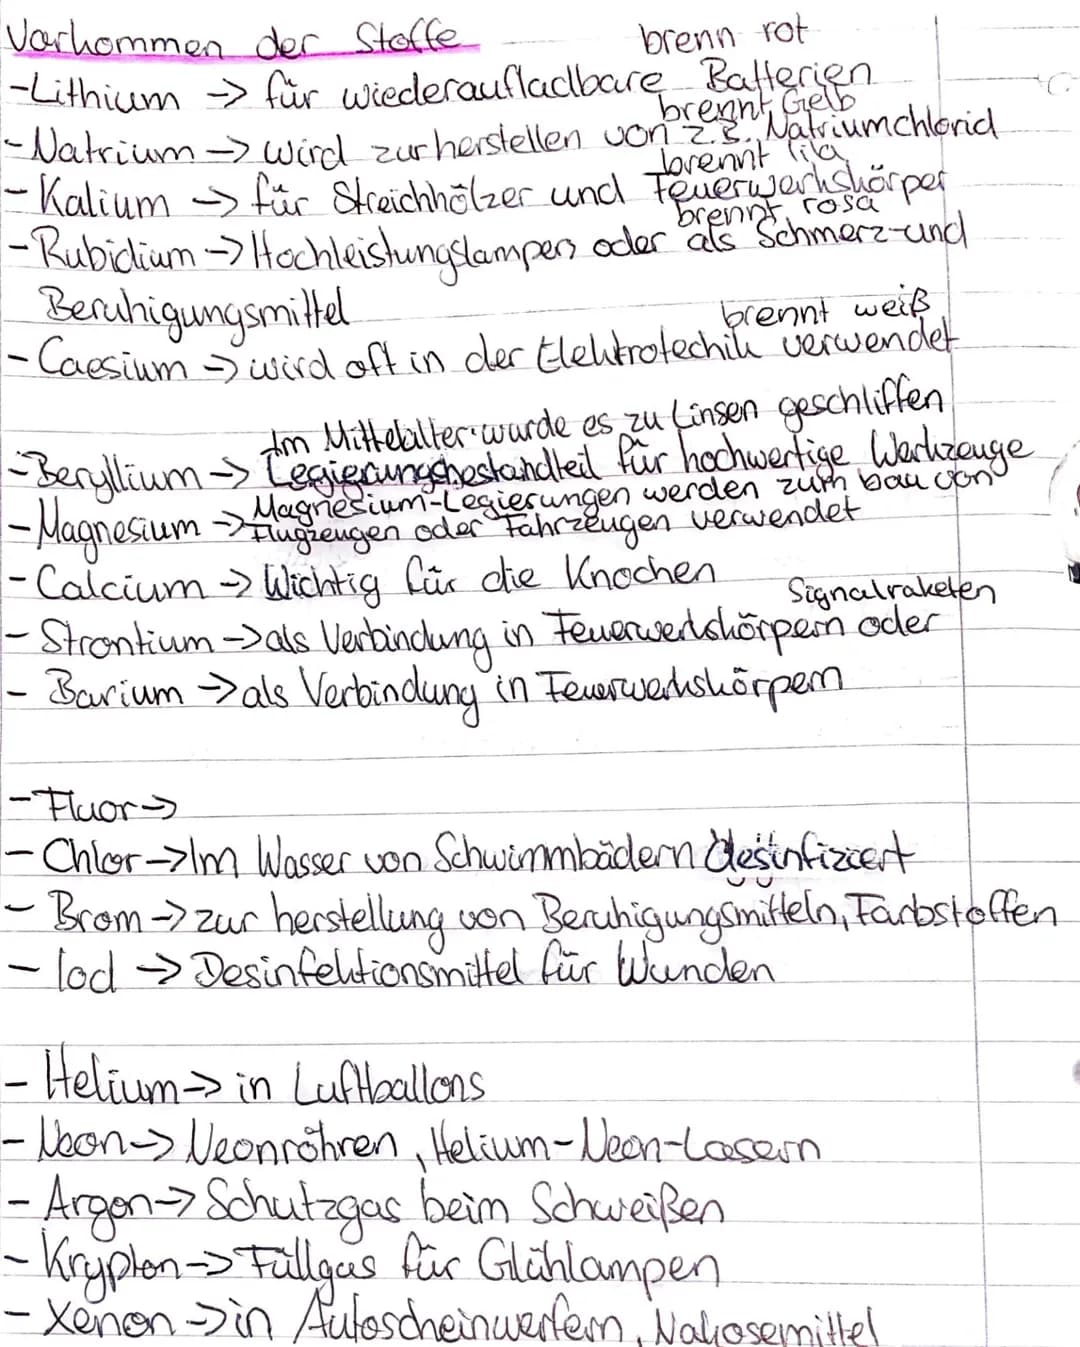 Vorkommen der Stoffe brenn rot
-Lithium -> für wiederaufladbare Batterien
brennt Gelb
-Natrium -> wird zur herstellen von z.B. Natriumchlorid
brennt lila
-Kalium -> für Streichhölzer und Feuerwerkskörper
brennt rosa
-Rubidium -> Hochleistungslampen oder als Schmerz-und
Beruhigungsmittel
brennt weiß
-Caesium -> wird oft in der Elektrotechik verwendet
Im Mittelalter wurde es zu Linsen geschliffen
-Beryllium -> Legierungsbestandteil für hochwertige Werkzeuge
Magnesium-Legierungen werden zum bau von
-Magnesium -> Flugzeugen oder Fahrzeugen verwendet
-Calcium -> Wichtig für die Knochen
Signalraketen
-Strontium -> als Verbindung in Feuerwerkskörpern oder
- Barium -> als Verbindung in Feuerwerkskörpern
-Fluor ->
-Chlor -> Im Wasser von Schwimmbädern desinfiziert
- Brom -> zur herstellung von Beruhigungsmitteln, Farbstoffen
- Iod -> Desinfektionsmittel für Wunden
- Helium -> in Luftballons
- Neon -> Neonröhren, Helium-Neon-Lasern
- Argon -> Schutzgas beim Schweißen
- Krypton -> Füllgas für Glühlampen
- Xenon -> in Autoscheinwerfern, Nakosemittel